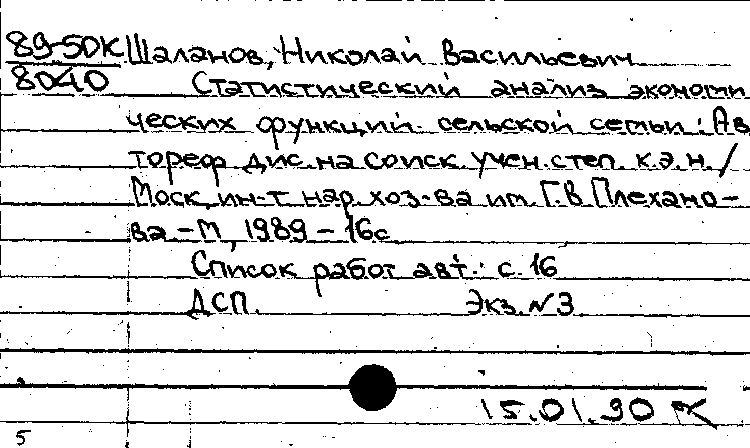 89-50К Шаланов, Николай Васильевич
8040 Статистический анализ экономи
ческих функций сельской семьи: Ав
тореф дис. на соиск. учен. степ. к.э.н. /
Моск. ин-т нар. хоз-ва им. Г.В Плехано-
ва - М, 1989 - 16с.
Список работ авт.: с. 16
ДСП. Экз. №3
15.01.90
5